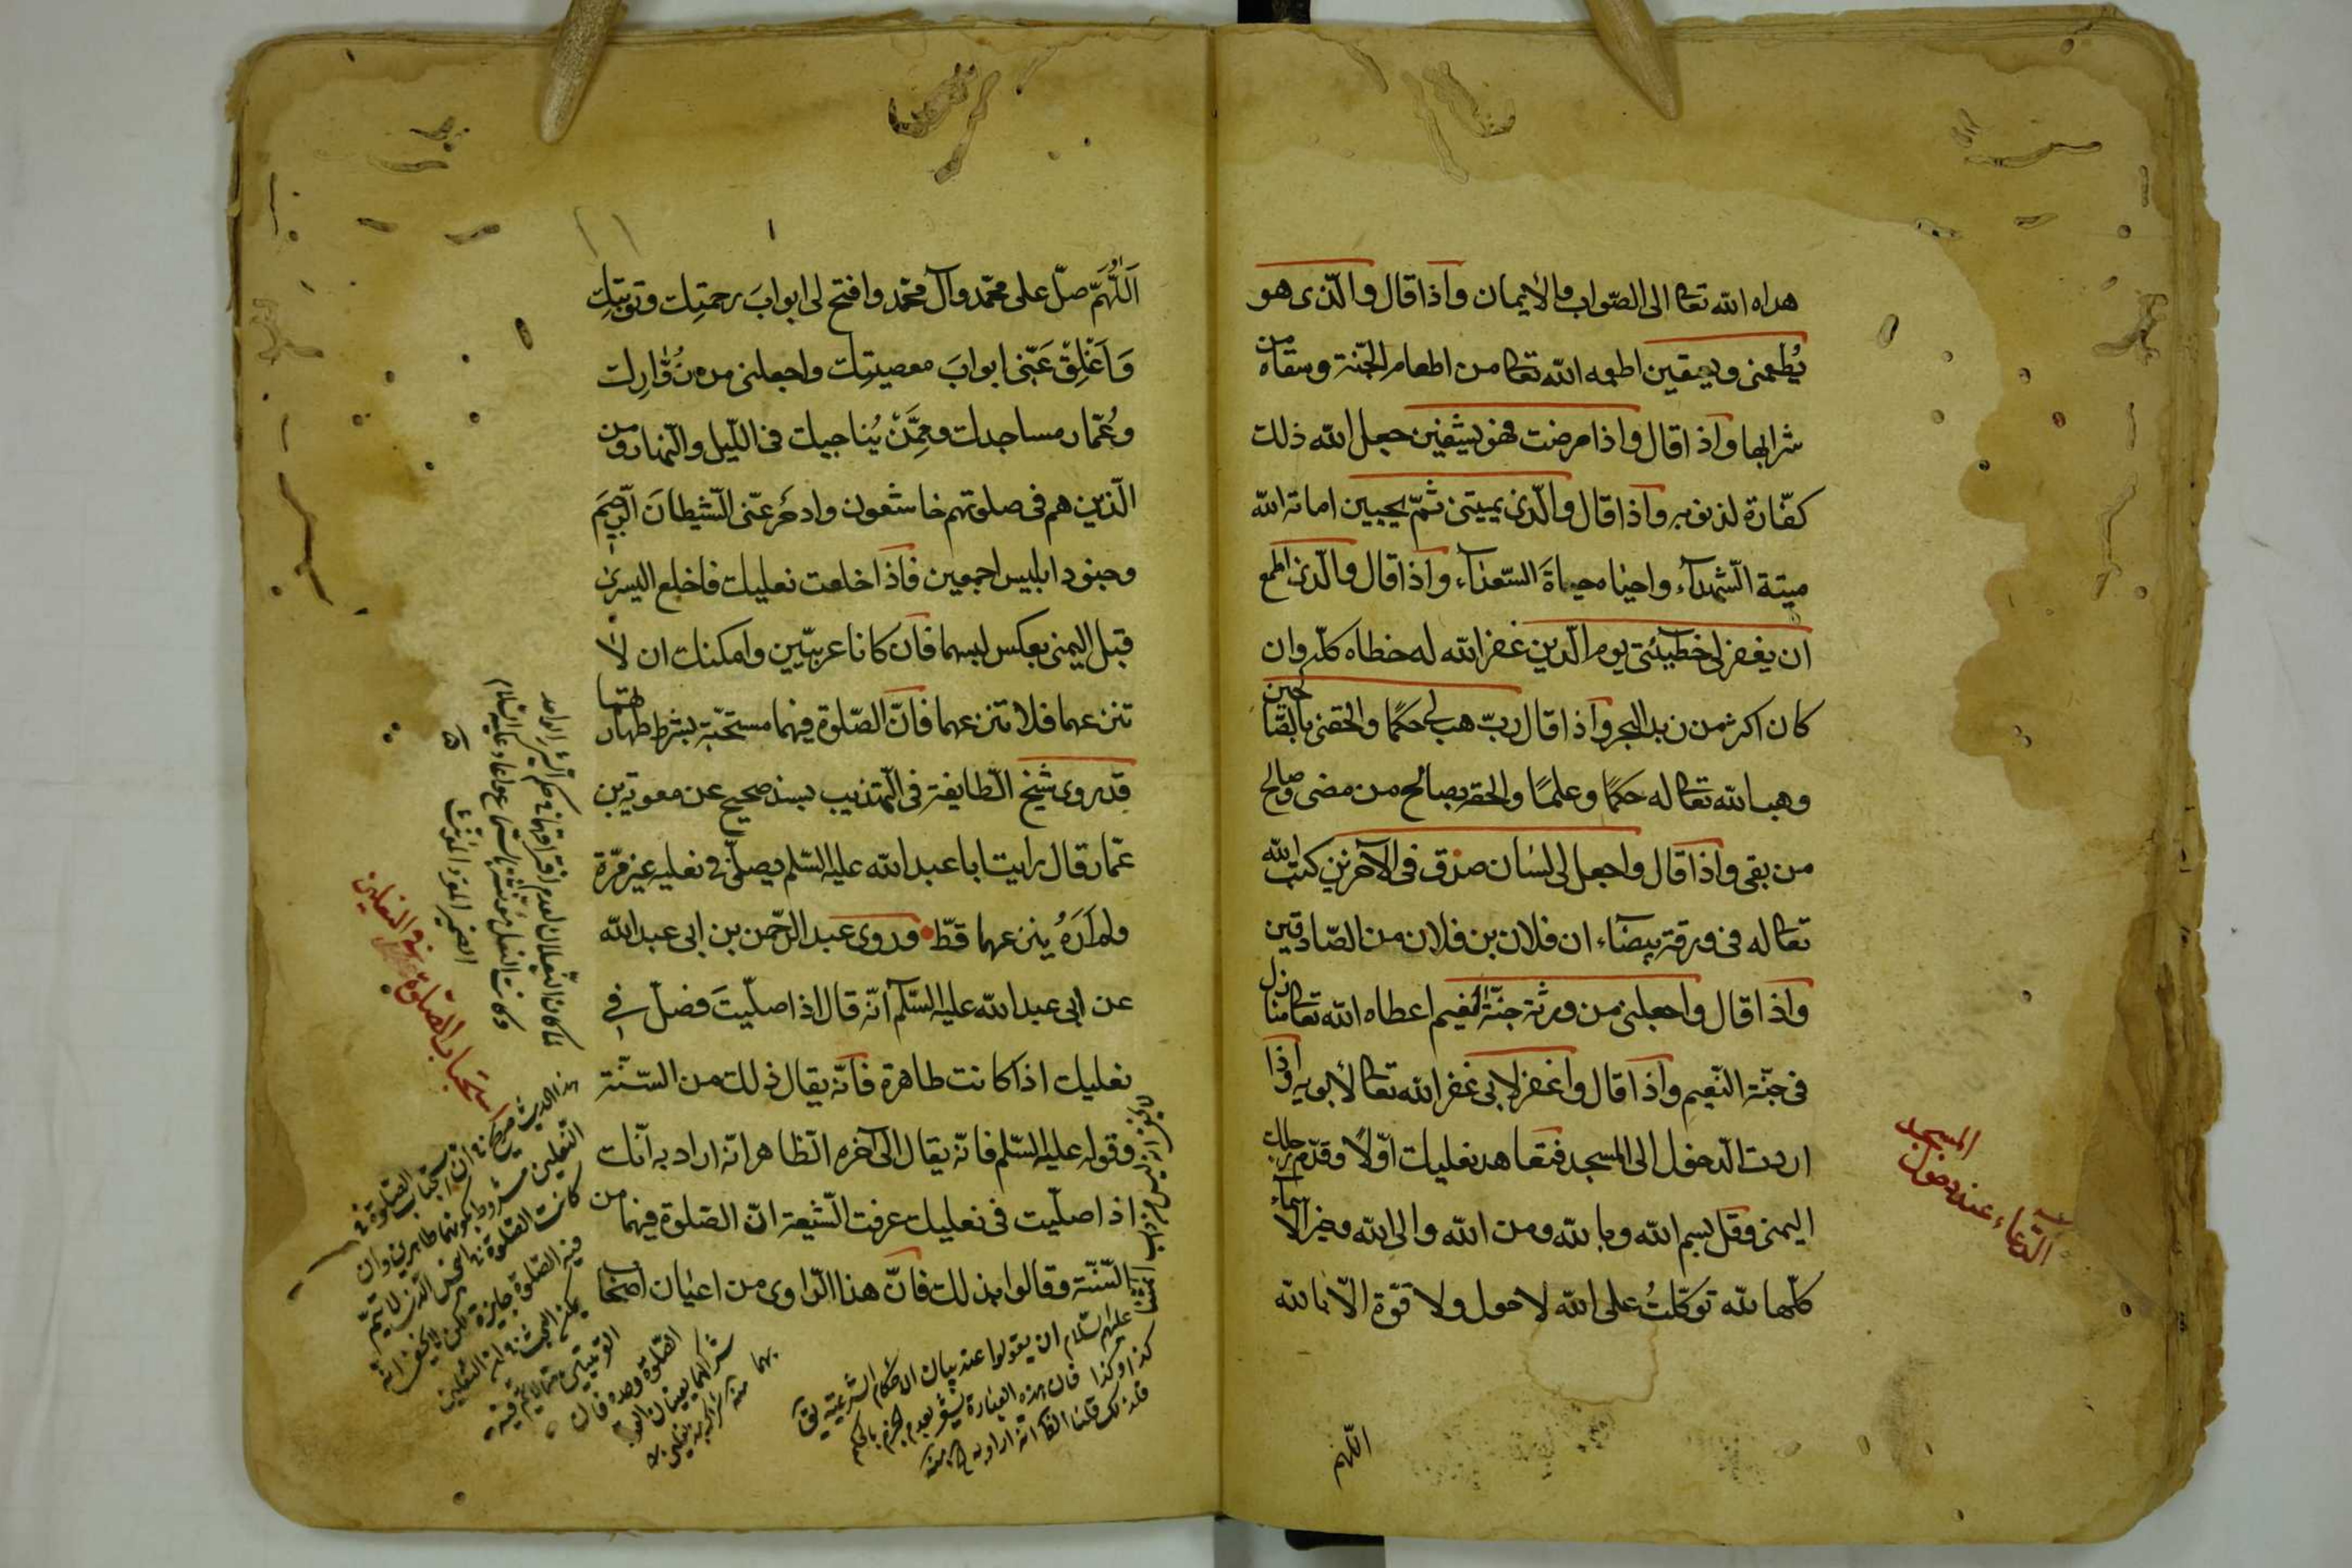 هداه الله تعا الى الصّواب والأيمان واذا قال والّذى هو
يُطعمنى ويسقين اطعمه الله تعا من اطعام الجنّة وسقاه من
شرابها واذا قال واذا مرضت فهو يشفين جعل الله ذلك
كفّارة لذنوبه واذا قال والّذى يميتنى ثمّ يحيين اماته الله
ميتة الشّهداء واحياه حياةَ السّعداء واذا قال والّذى اطمع
ان يغفر لى خطيئتى يوم الدّين غفر الله له خطاه كلّه وان
كان اكثر من زبد البحر واذا قال ربّ هب لى حكمًا والحقنى بالصّالحين
وهب الله تعا له حكمًا وعلمًا والحقه بصالح من مضى وصالح
من بقى واذا قال واجعل لى لسان صدق فى الآخرين كتب الله
تعا له فى ورقة بيضاء ان فلان بن فلان من الصّادقين
واذا قال واجعلنى من ورثة جنّة النّعيم اعطاه الله تعا منازل
فى جنّة النّعيم واذا قال واغفر لابى غفر الله تعا لأبويه واذا
اردت الدّخول الى المسجد فتعاهد نعليك اوّلًا وقدّم رجلك
اليمنى وقل بسم الله وبالله ومن الله والى الله وخير الأسماء
كلّها لله توكّلتُ على الله لا حول ولا قوّة الّا بالله
اللّهم
الدّعاء عند دخول
المسجد
اَللّٰهُمَّ صلّ على محمّد وآل محمّد وافتح لى ابوابَ رحمتِك وتوبتِك
وَاَغْلِقْ عَنّى ابوابَ معصيتِك واجعلنى من زُوّارِك
وعُمّار مساجدك وممَّنْ يُناجيك فى اللّيل والنّهار ومن
الّذين هم فى صلوتهم خاشعون وادحَر عنّى الشّيطانَ الرّجيمَ
وجنود ابليس اجمعين فاذا خلعت نعليك فاخلع اليسرى
قبل اليمنى بعكس لبسهما فان كانا عربيّين وامكنك ان لا
تنزعهما فلا تنزعهما فانّ الصّلوة فيهما مستحبّة بشرط طهارتهما
قد روى شيخ الطّايفة فى التّهذيب بسند صحيح عن معوية بن
عمّار قال رايت ابا عبد الله عليه السّلم يصلّى فى نعليه غير مرّة
ولم اَرَهُ ينزعهما قطّ وروى عبد الرّحمن بن ابى عبد الله
عن ابى عبد الله عليه السّلم انّه قال اذا صلّيتَ فصلّ فى
نعليك اذا كانت طاهرة فانّه يقال ذلك من السّنّة
وقوله عليه السّلم فانّه يقال الى آخره الظّاهر انّه اراد به انّك
اذا صلّيت فى نعليك عرفت الشّيعة انّ الصّلوة فيهما من
السّنّة وقالوا بذلك فانّ هذا الرّاوى من اعيان اصحابنا
استحباب الصّلوة فى النعلين
عليهم السّلام ان يقولوا عند بيان الاحكام الشرعية
كذا وكذا فان هذه العبارة تشعر بعدم الجزم بالحكم
فلذلك قلنا